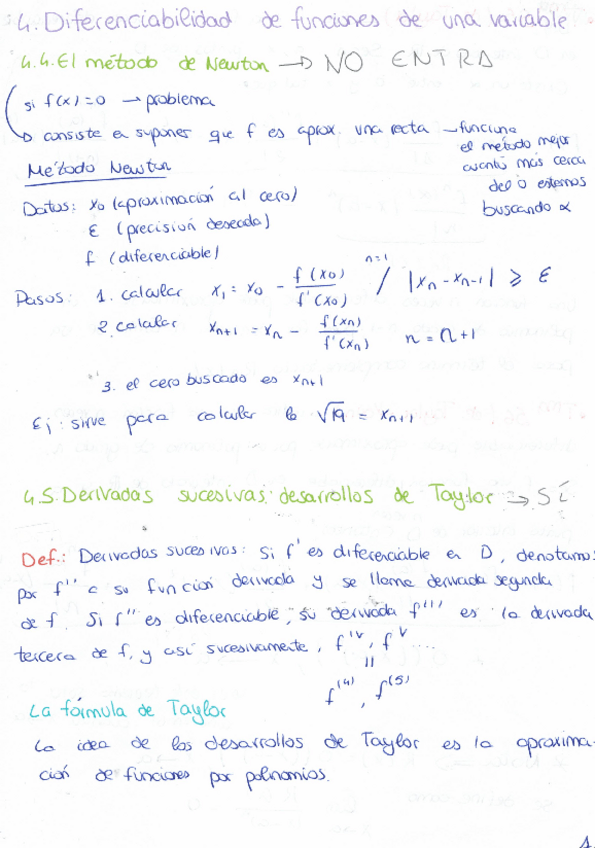 4. Diferenciabilidad de funciones de una variable
4.4. El método de Newton → NO ENTRA
si f(x)=0 → problema
→ consiste en suponer que f es aprox. una recta → funciona
el método mejor
cuanto más cerca
del 0 estemos
buscando α
Método Newton
Datos: x₀ (aproximación al cero)
ε (precisión deseada)
f (diferenciable)
Pasos: 1. calcular x₁ = x₀ - f(x₀)/f'(x₀) / n=1 |xₙ - xₙ₋₁| ⩾ ε
2. calcular xₙ₊₁ = xₙ - f(xₙ)/f'(xₙ) n = n+1
3. el cero buscado es xₙ₊₁
Ej: sirve para calcular la √19 = xₙ₊₁
4.5. Derivadas sucesivas: desarrollos de Taylor → SÍ
Def.: Derivadas sucesivas: Si f' es diferenciable en D, denotamos
por f'' a su función derivada y se llama derivada segunda
de f. Si f'' es diferenciable, su derivada f''' es la derivada
tercera de f, y así sucesivamente, f^IV, f^V ....
=
f^(4), f^(5)
La fórmula de Taylor
La idea de los desarrollos de Taylor es la aproxima-
ción de funciones por polinomios.